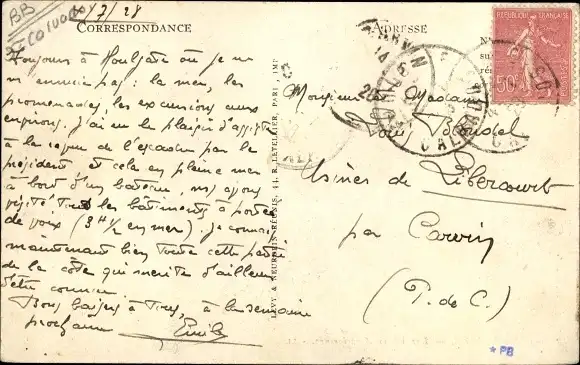 BB
CO10000
7/28
CORRESPONDANCE
Toujours à Houlgate où je ne
m'ennuie pas : la mer, les
promenades, les excursions aux
environs. J'ai eu le plaisir d'assister
à la revue de l'escadre par le
président et cela en pleine mer
à bord d'un bateau, ns avons
visité tous les bâtiments à portée
de voix (3 H ½ en mer). je connais
maintenant bien toute cette partie
de la côte qui mérite d'ailleurs
d'être connue
Bons baisers à tous, à la semaine
prochaine
Emile
LÉVY & NEURDEIN RÉUNIS, 44, R. LETELLIER, PARIS - IMP
ADRESSE
RÉPUBLIQUE FRANÇAISE
50
CARVIN
CALVADOS
Monsieur Madame
Blondel
Usines de Libercourt
par Carvin
(P. de C.)
*PB